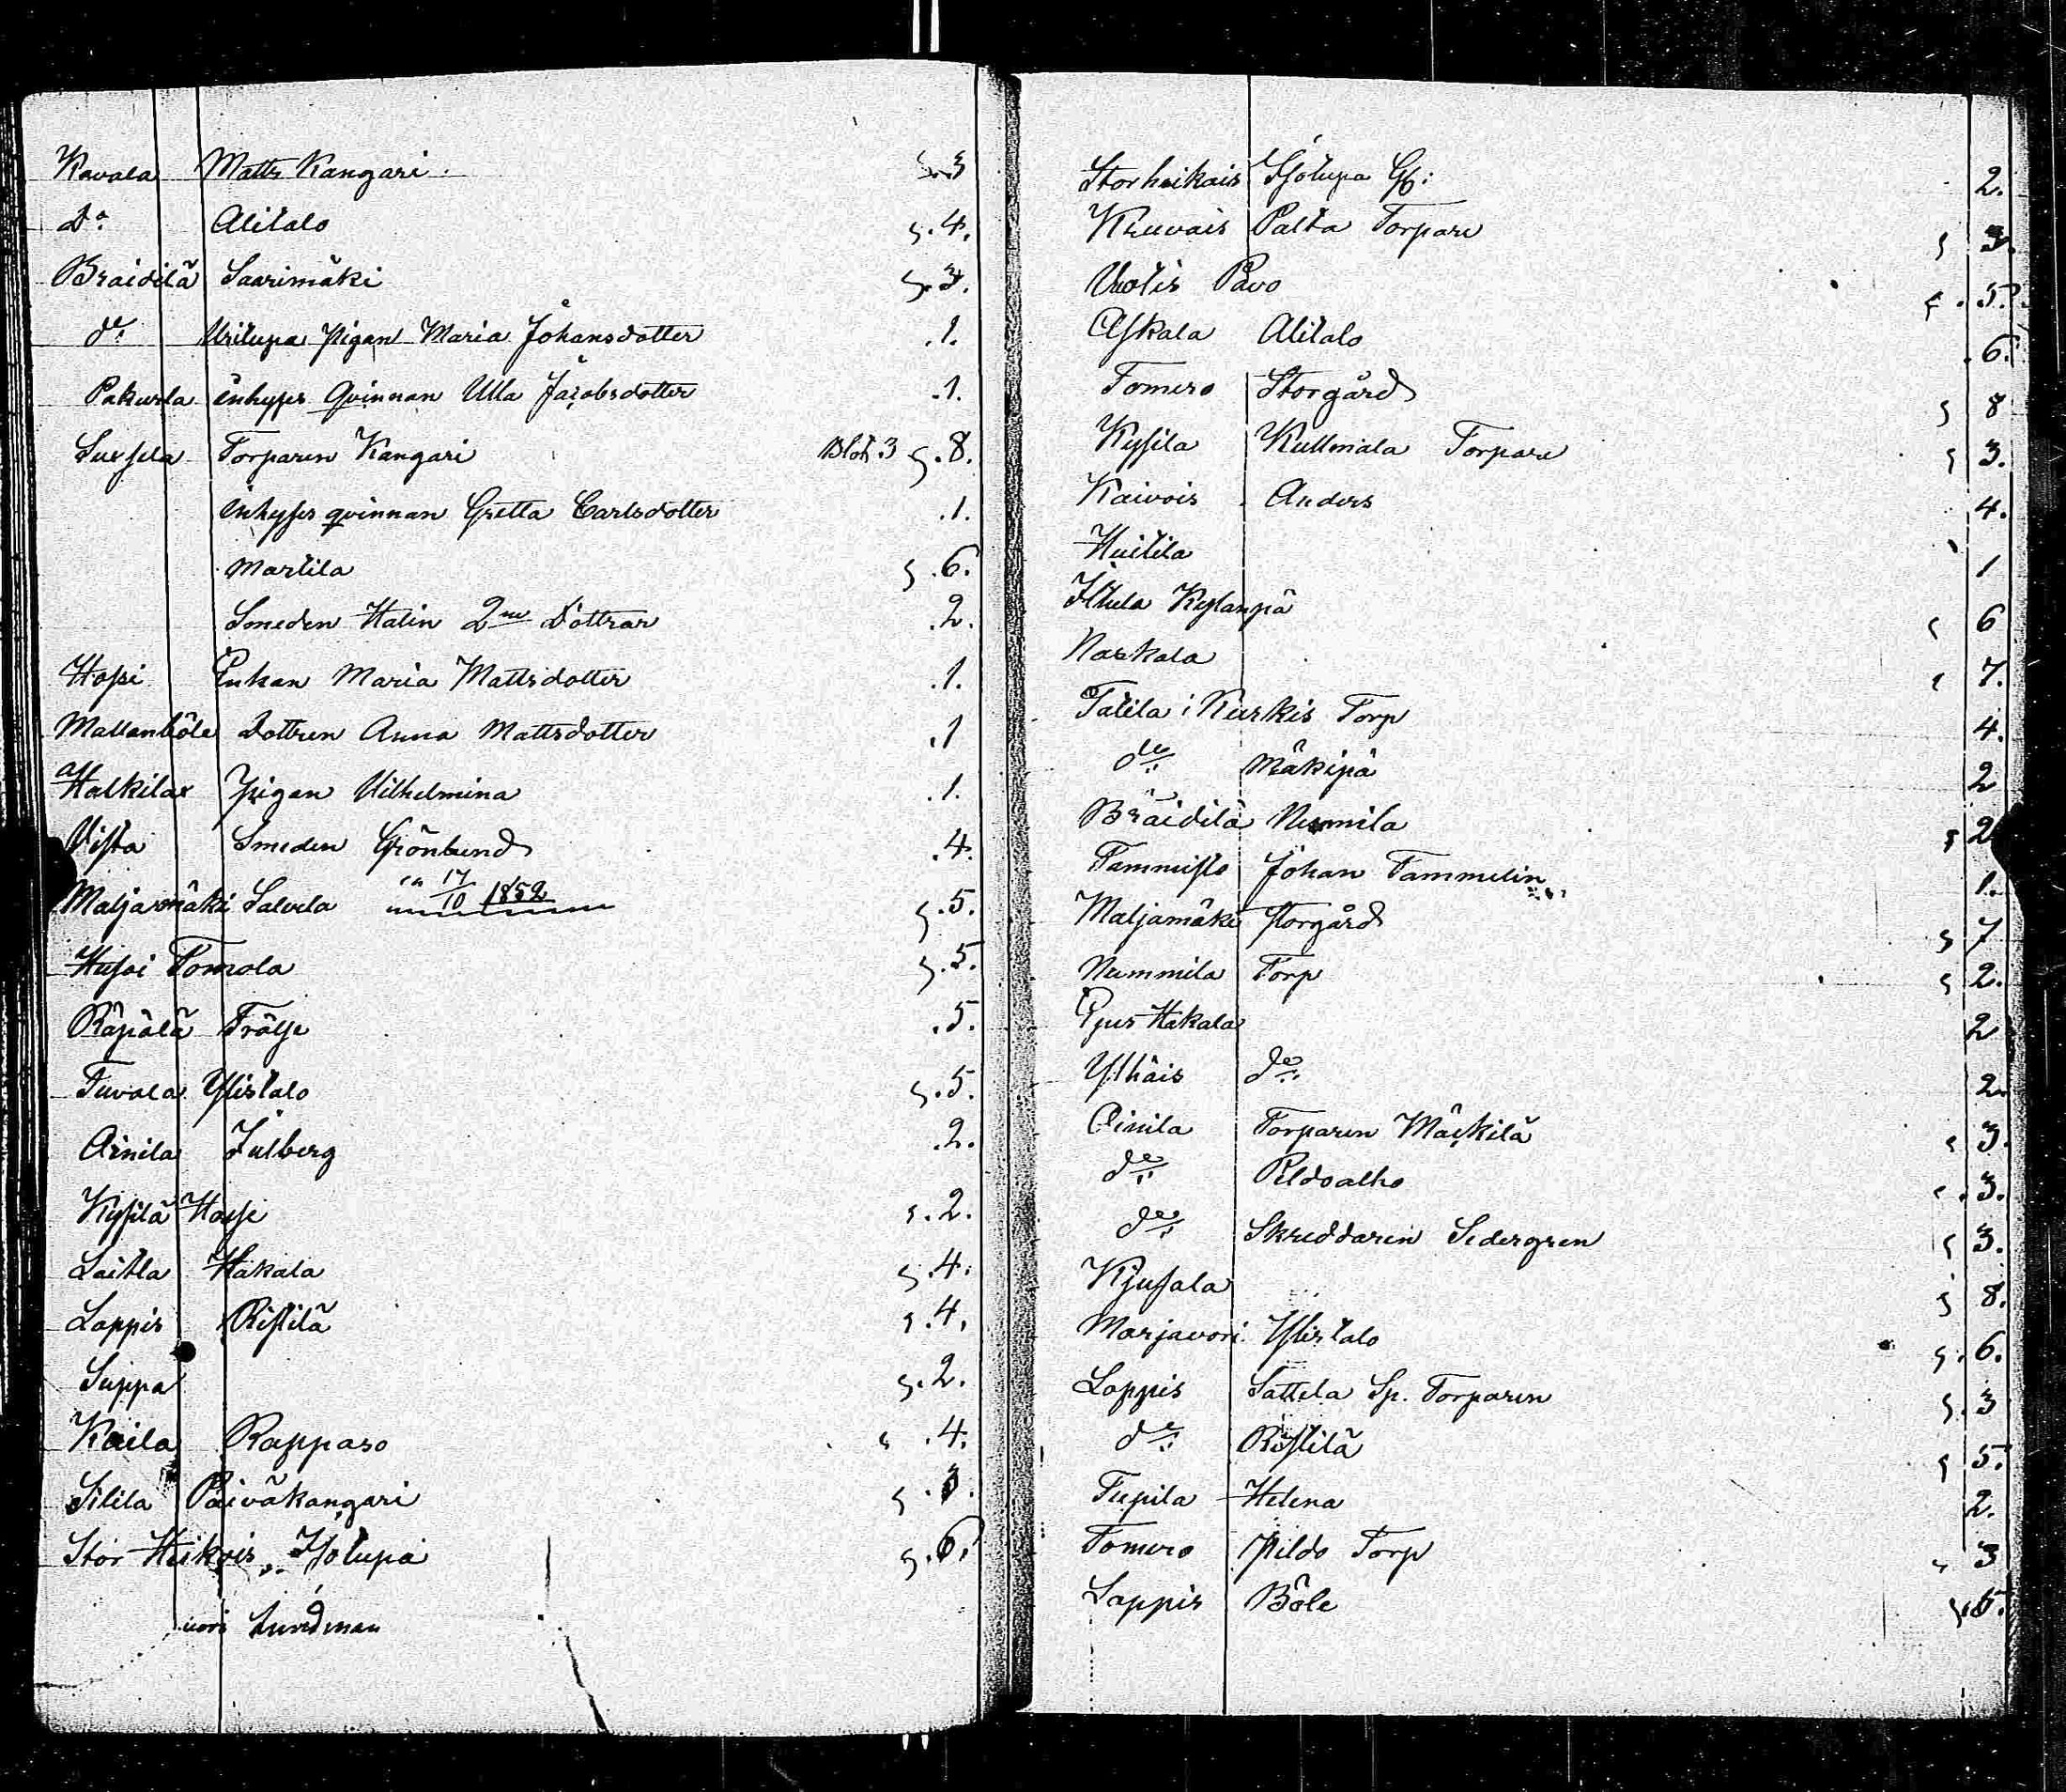 Kavala Matts Kangari 3
Do Alitalo 4.
Braidilä Saarimäki 3.
do Uritupa Pigan Maria Johansdotter .1.
Pakurla inhyses Qvinnan Ulla Jacobsdotter .1.
Suxsela Torparen Kangari Blot. 3 8.
inhyses qvinnan Gretta Carlsdotter .1.
Martila 6.
Smeden Halin 2ne Döttrar .2.
Hossi Enkan Maria Mattsdotter .1.
Mallanböle Dottren Anna Mattsdotter .1
Halkilax Pigan Vilhelmina .1.
Vista Smeden Grönlund .4.
Maljamäki Salvela 17/10 1852 5.
Tomola 5.
Räpälä Frälse .5.
Tuvala Ylistalo 5.
Ainila Julberg .2.
Kysilä 2.
Laitla Hakala 4.
Lappis Ristilä 4.
Suppa 2.
Kaila Rappaso 4.
Silila Päiväkangari 3.
Stor Heikois Isotupa 6.
vori Lundman
Storheikois Isotupa 2.
Palta Torpare 3.
Uotis Pavo 5.
Askala Alitalo .6.
Tomero Storgård 8
Kysila Kullmala Torpare 3.
Kaivois Anders 4.
Huitila 1
Ittula Kylanpä 6
Narkala 7.
Talila i Kurkis Torp 4.
do Mäkipä 2
Bräidilä Nummila 2
Tammisto Johan Tammelin 1.
Maljamäki Storgård 7
Nummila Torp 2.
Pyus Hakala 2
Ylhäis do 2.
Ainila Torparen Mäkilä 3.
do Peldoalho 3.
do Skreddaren Sedergren 3.
Kjusala 8.
Marjavori Ylistalo 6.
Lappis Sattela Sp. Torparen 3
do Ristilä 5.
Tupila Helena 2.
Tomero Pildo Torp 3
Lappis Böle 5.